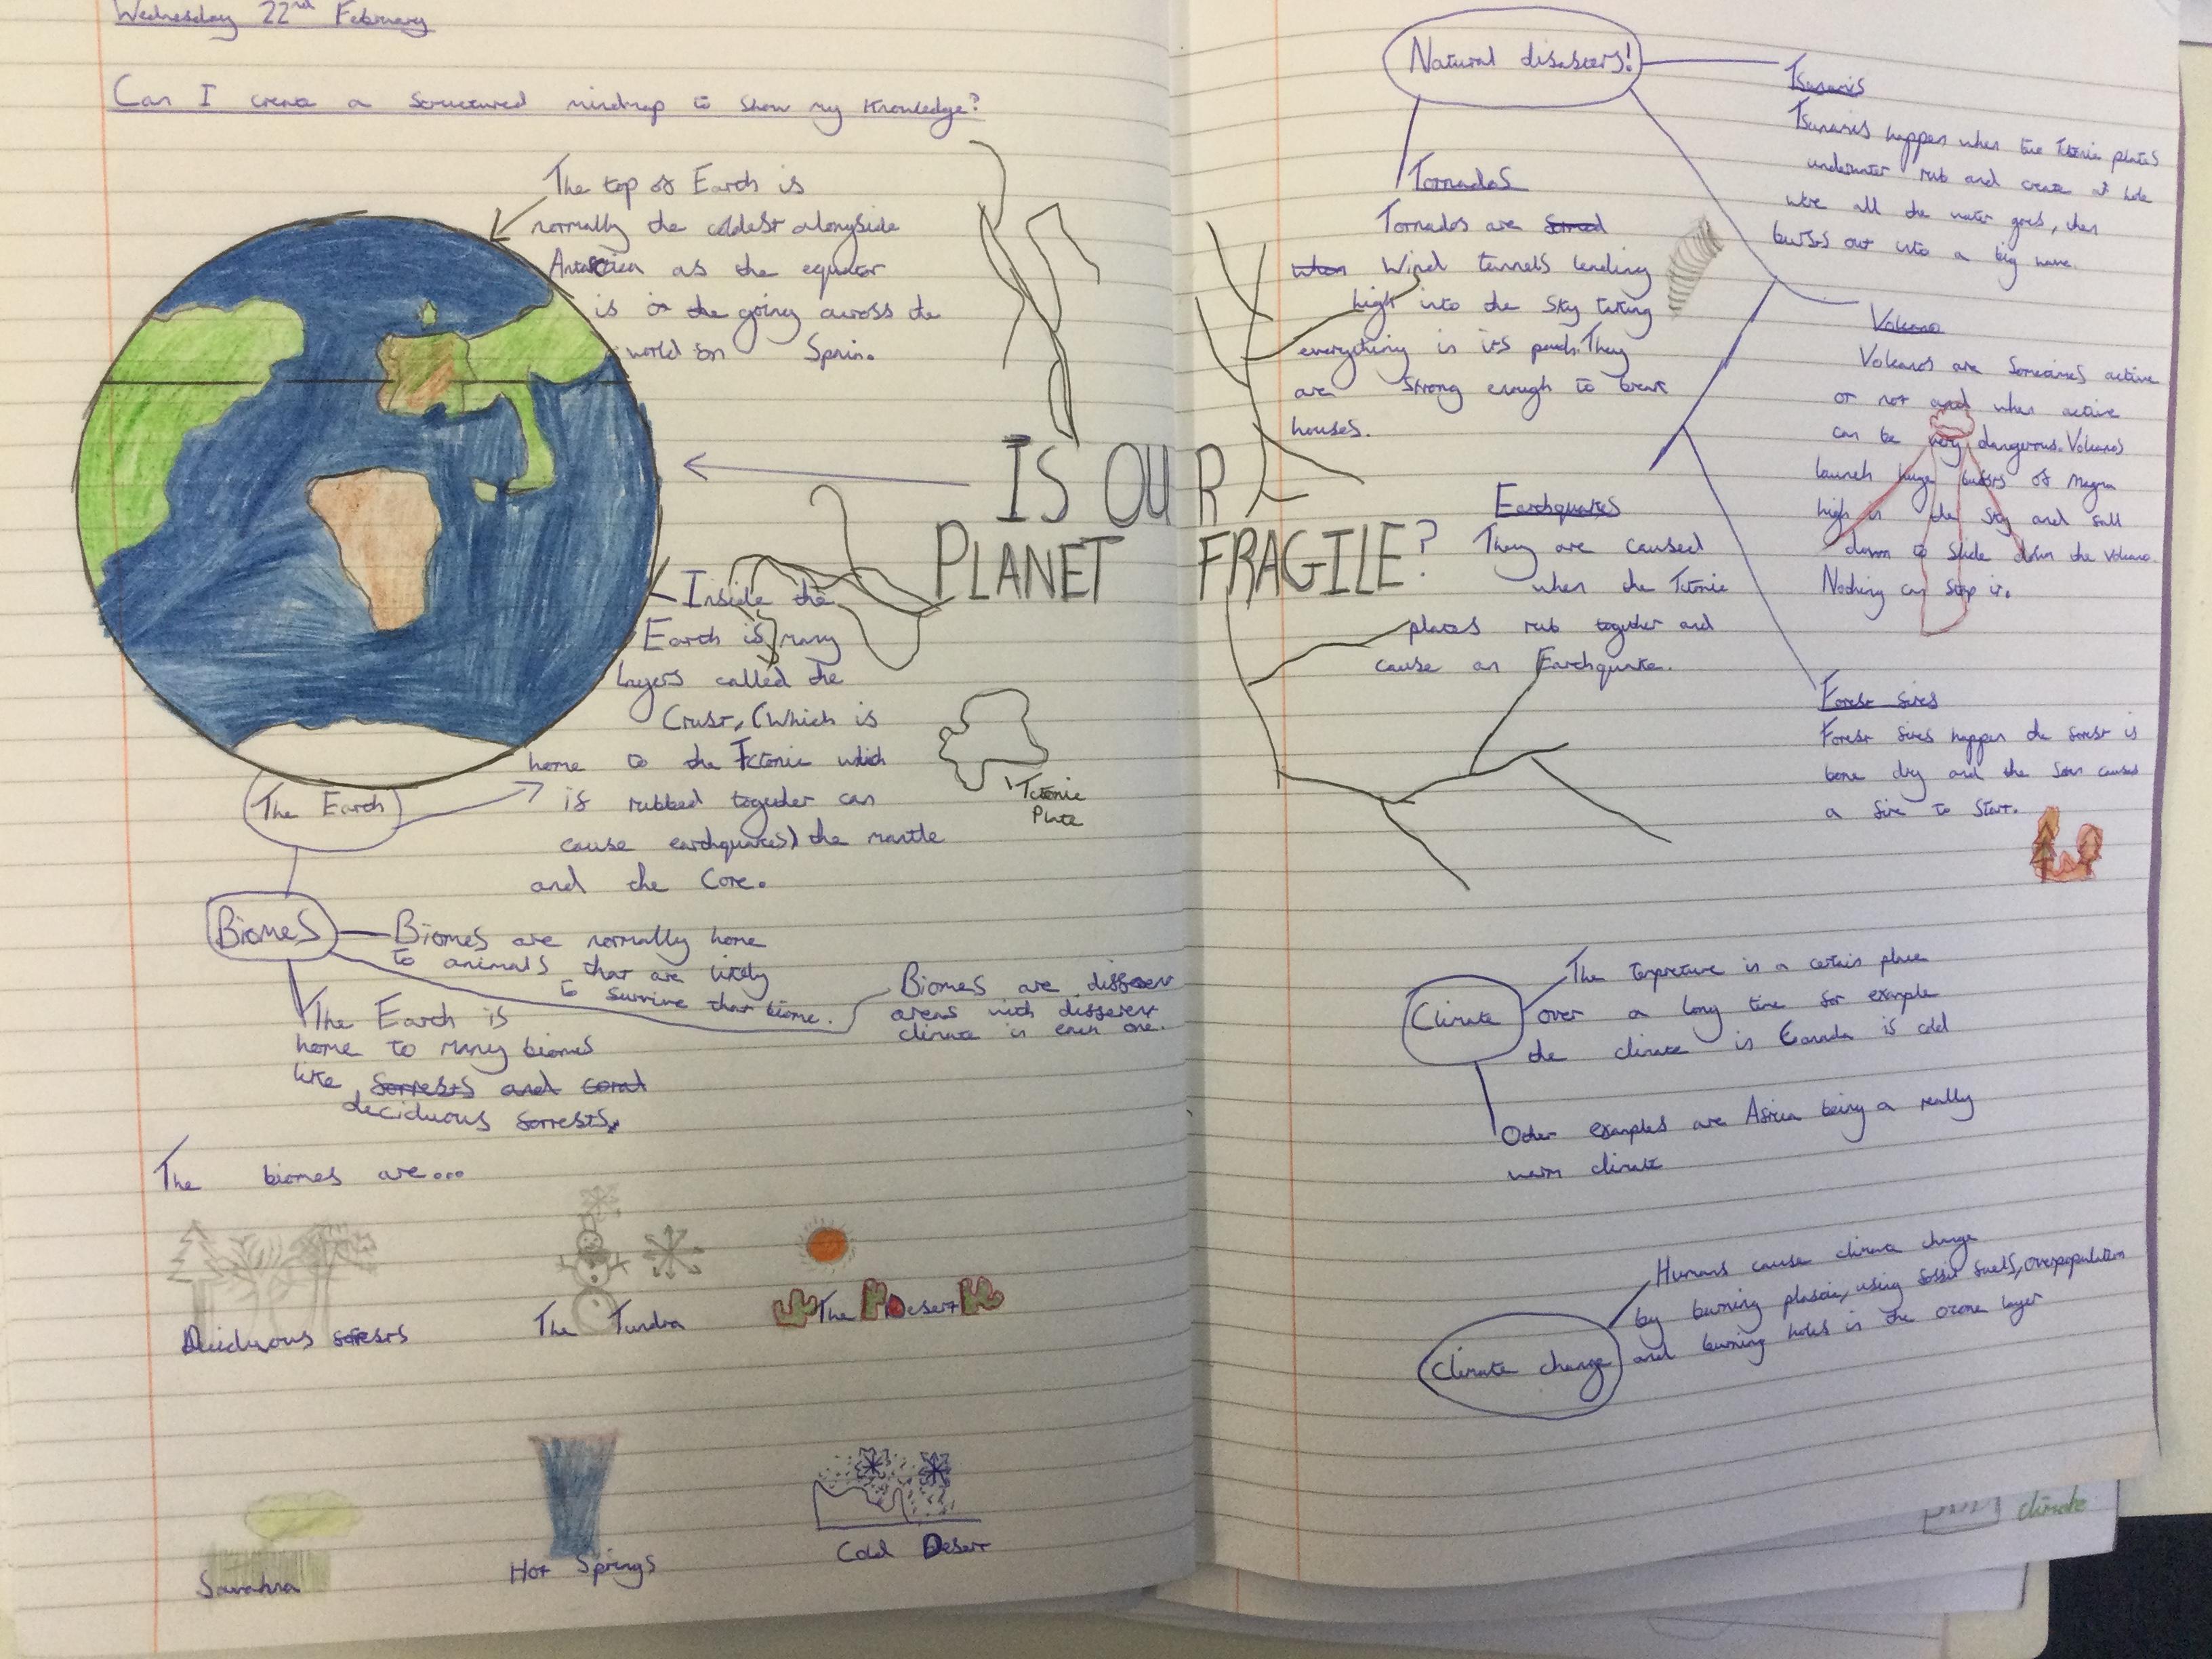 Wednesday 22nd February
Can I create a structured mindmap to show my knowledge?
The top of Earth is
normally the coldest alongside
Antarctica as the equator
is in the going across the
world on Spain.
IS OUR
PLANET FRAGILE?
Inside the
Earth is many
layers called the
Crust, (Which is
home to the Tctonic which
if rubbed together can
cause earthquakes) the mantle
and the Core.
Tctonic
Plate
The Earth
Biomes
Biomes are normally home
to animals that are likely
to survive that biome.
Biomes are different
areas with different
climate in each one.
The Earth is
home to many biomes
like forrests and coral
deciduous forrests.
The biomes are...
Deciduous forests
The Tundra
The Desert
Savahna
Hot Springs
Cold Desert
Natural disasters!
Tornados
Tornados are formed
when Wind tunnels lending
high into the sky taking
everything in its path. They
are strong enough to break
houses.
Tsunamis
Tsunamis happen when the Tctonic plates
underwater rub and create a hole
were all the water goes, then
bursts out into a big wave.
Volcano
Volcanos are sometimes active
or not and when active
can be very dangerous. Volcanos
launch huge bursts of magma
high in the sky and fall
down to slide down the volcano.
Nothing can stop it.
Earthquakes
They are caused
when the Tctonic
plates rub together and
cause an Earthquake.
Forest fires
Forest fires happen the forest is
bone dry and the sun causes
a fire to start.
Climate
The tempreture in a certain place
over a long time for example
the climate in Canada is cold
Other examples are Africa being a really
warm climate
Climate change
Humans cause climate change
by burning plastic, using fossil fuels, overpopulation
and burning holes in the ozone layer
climate